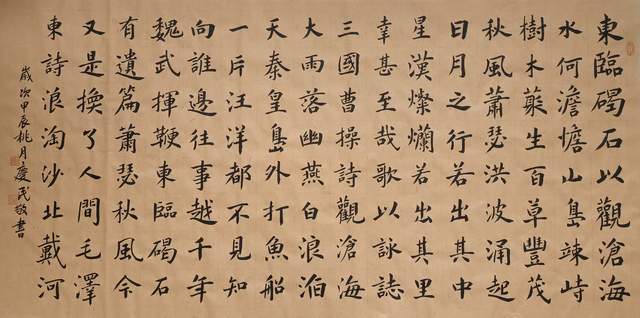 東臨碣石以觀滄海
水何澹澹山島竦峙
樹木藂生百草豐茂
秋風蕭瑟洪波涌起
日月之行若出其中
星漢燦爛若出其里
幸甚至哉歌以詠誌
三國曹操詩觀滄海
大雨落幽燕白浪滔
天秦皇島外打魚船
一片汪洋都不見知
向誰邊往事越千年
魏武揮鞭東臨碣石
有遺篇簫瑟秋風今
又是換了人間毛澤
東詩浪淘沙北戴河
歲次甲辰桃月慶民敬書